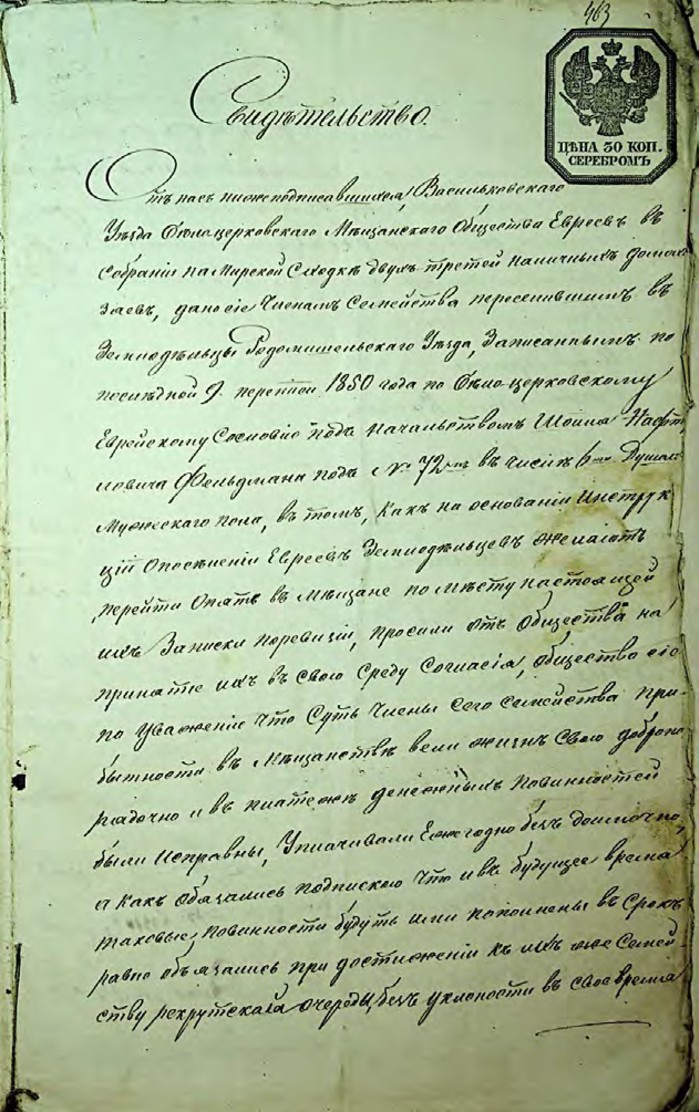 463
ЦѢНА 30 КОП.
СЕРЕБРОМЪ
Свидѣтельство.
Отъ насъ нижеподписавшихся, Васильковскаго
Уѣзда Бѣлоцерковскаго Мѣщанскаго Общества Евреевъ въ
собраніи на Мирской Сходкѣ двухъ третей наличныхъ домохо
заевъ, дано сіе Членамъ Семейства переселившимъ въ
Земледѣльцы Радомишельскаго Уѣзда, Записаннымъ по
послѣдной 9. переписи 1850 года по Бѣло-церковскому
Еврейскому Сословію подъ начальствомъ Шоила Нафт
ловича Фельдмана подъ № 72мъ въ числѣ 6ти Душъ
Мужескаго пола, въ томъ, Какъ на основаніи Инструк
цій о поселеніи Евреевъ Земледѣльцевъ желаютъ
перейти Опять въ Мѣщане по Мѣсту настоящей
ихъ Записки по ревизіи, просили отъ Общества на
принятіе ихъ въ свою Среду Согласія, общество сіе
по уваженію что Суть Члены Сего семейства при-
бытности въ Мѣщанствѣ вели жизнь Свою добропо
рядочно и въ платежѣ денежныхъ повинностей
были Исправны, Уплачивали Ежегодно безъ доимочно,
а Какъ Обязались подпискою что и въ будущее время
таковые повинности будутъ ими пополнены въ Срокъ
равно обязались при достиженіи къ ихъ же Семей-
ству рекрутской очереди, безъ уклоности въ свое время